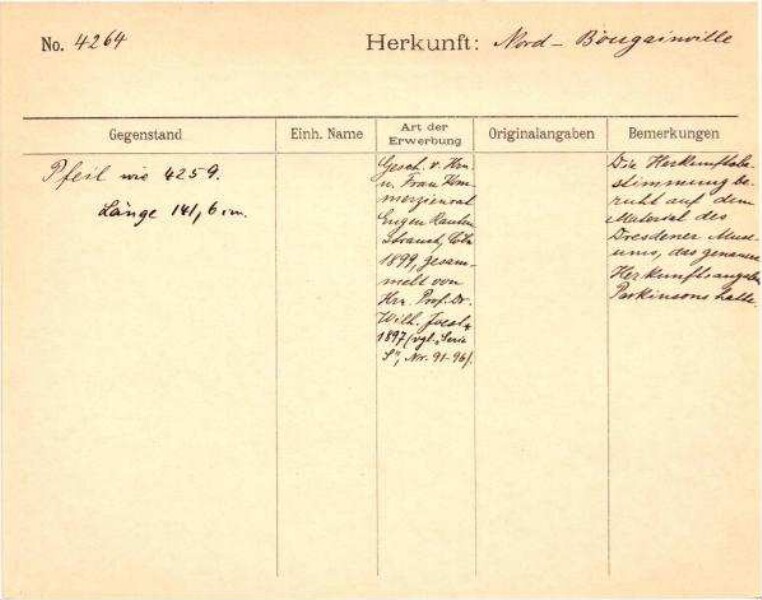 No. 4264
Herkunft: Nord-Bougainville
Gegenstand
Einh. Name
Art der Erwerbung
Originalangaben
Bemerkungen
Pfeil wie 4259.
Länge 141,6 cm.
Gesch. v. Hrn.
u. Frau Kom-
merzienrat
Eugen Rauten-
strauch, Cöln
1899, gesam-
melt von
Hrn. Prof. Dr.
Wilh. Joest
1897 (vgl. „Serie
S", Nr. 91-96).
Die Herkunftsbe-
stimmung be-
ruht auf dem
Material des
Dresdener Muse-
ums, das genaue
Herkunftsangaben
Parkinsons hatte.